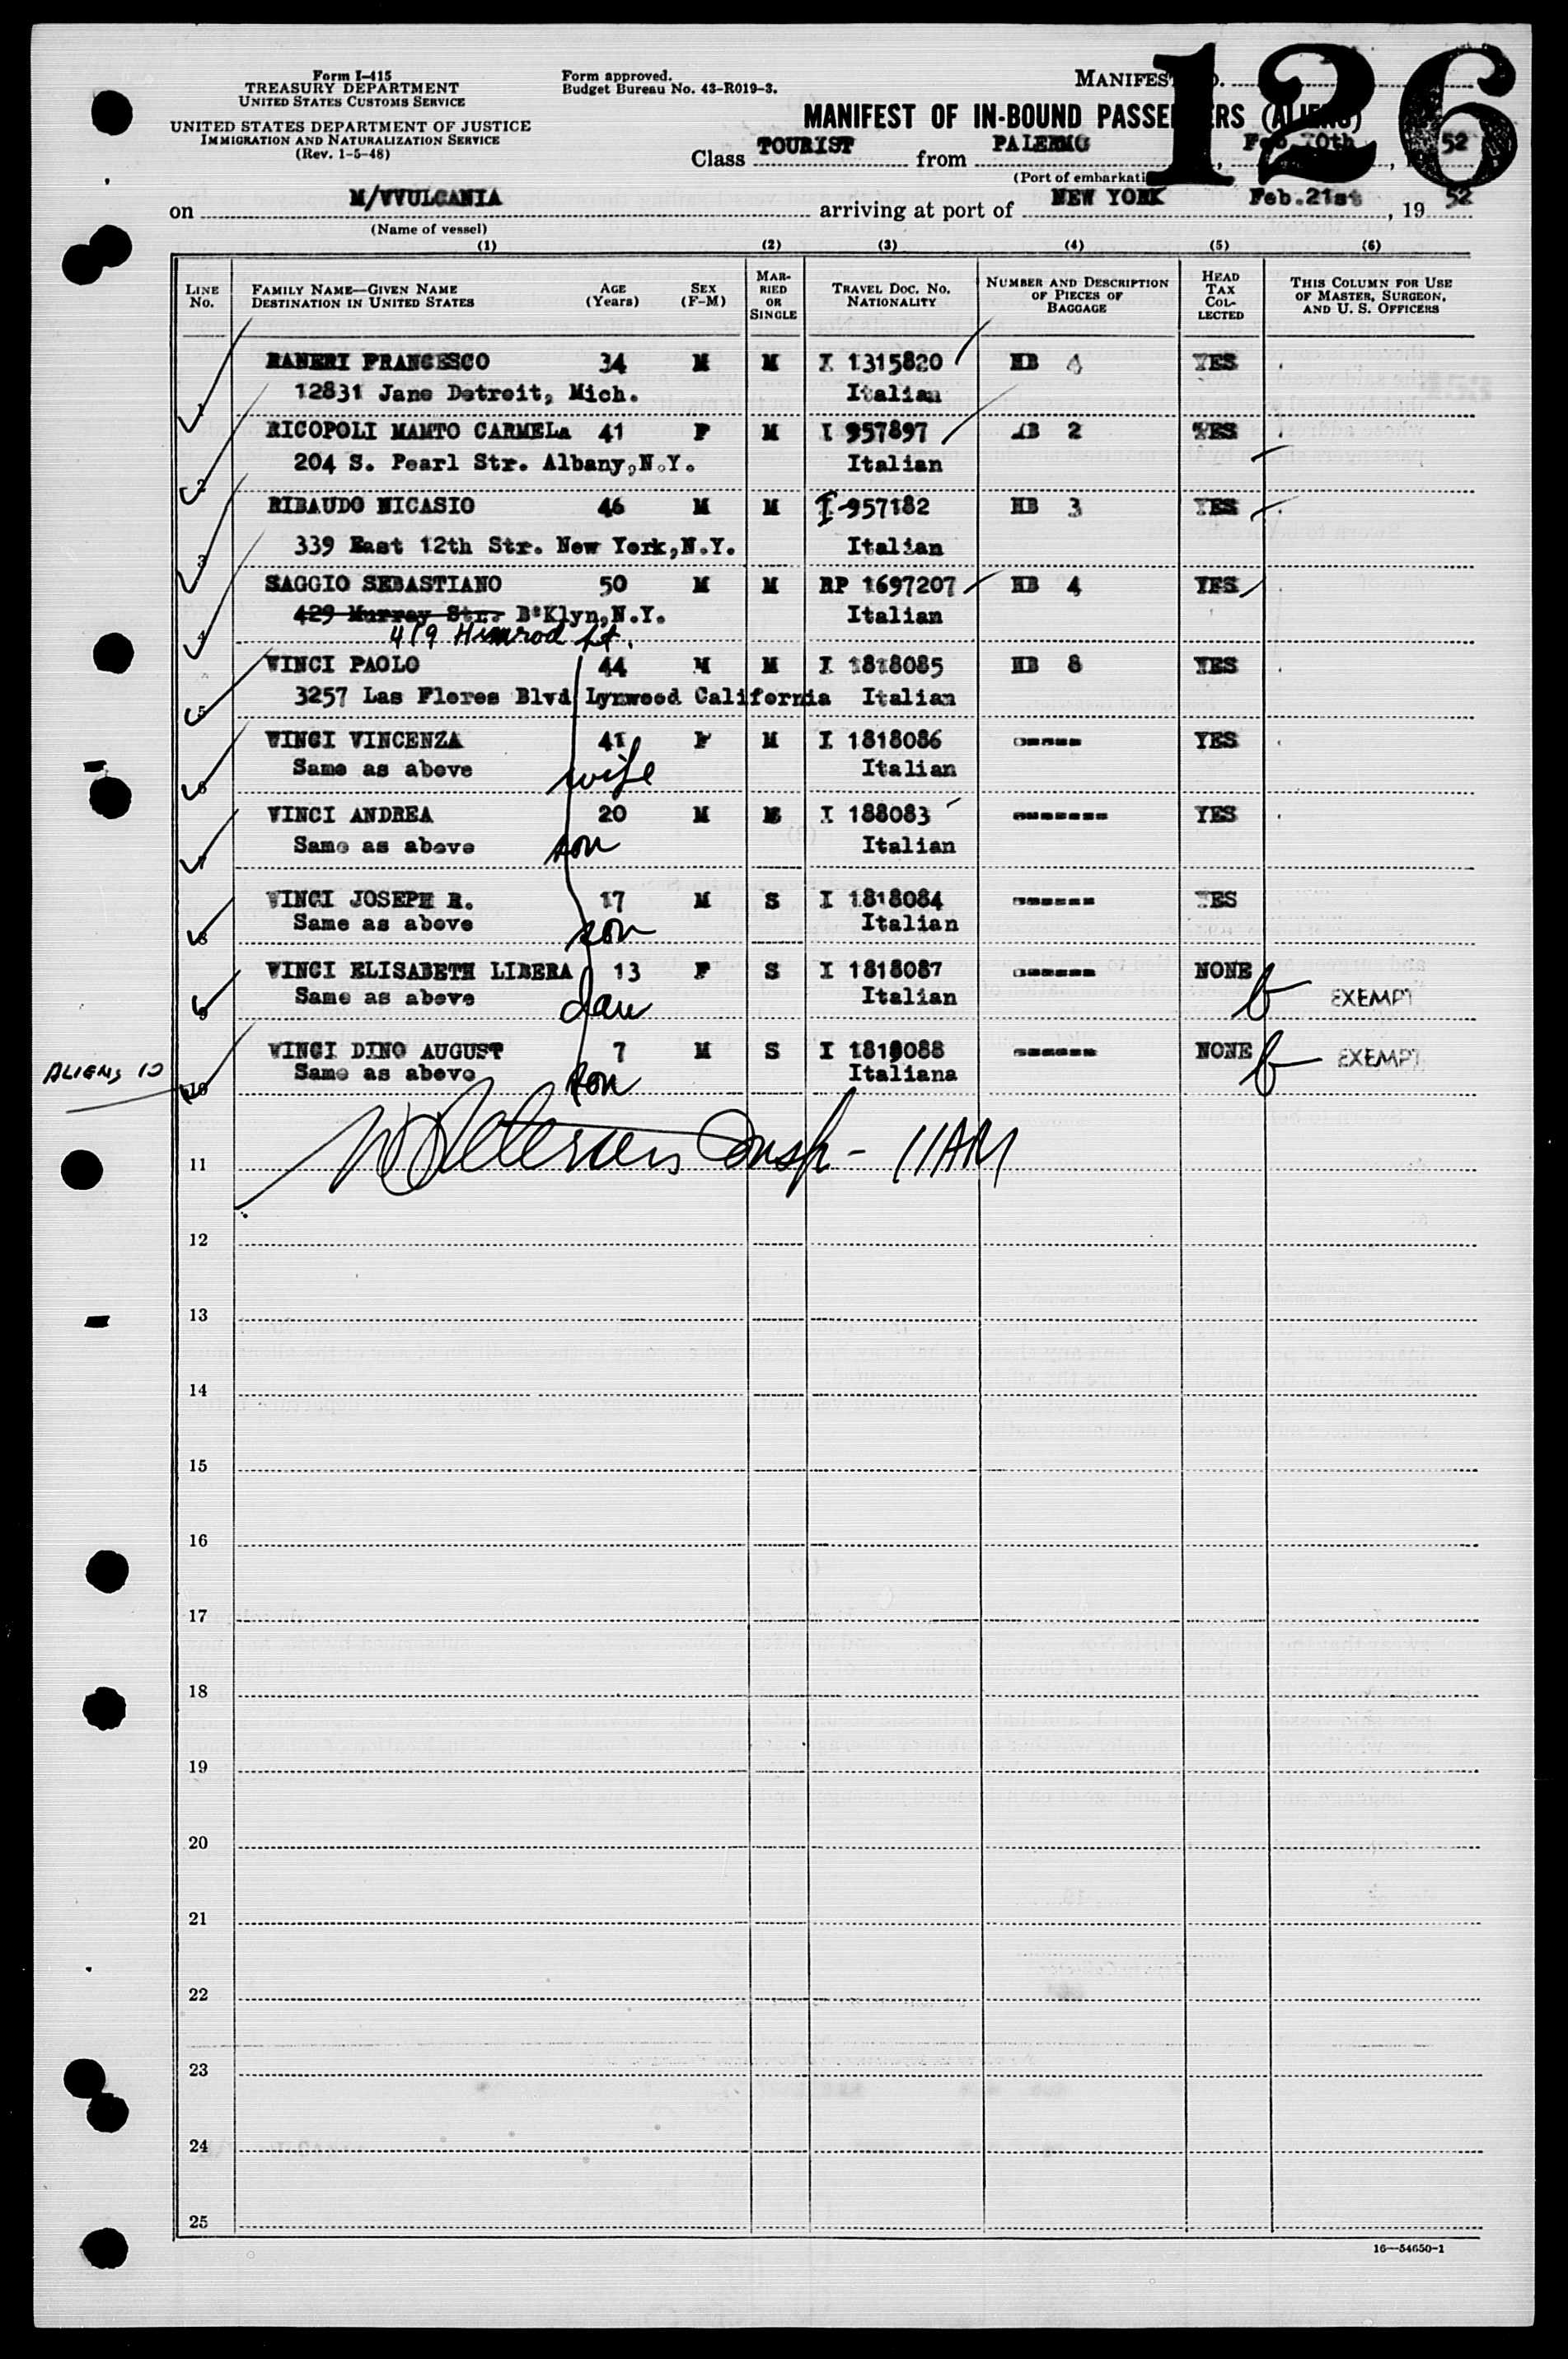 Form I-415
TREASURY DEPARTMENT
UNITED STATES CUSTOMS SERVICE
UNITED STATES DEPARTMENT OF JUSTICE
IMMIGRATION AND NATURALIZATION SERVICE
(Rev. 1-5-48)
Form approved.
Budget Bureau No. 43-R019-3.
126
MANIFEST OF IN-BOUND PASSENGERS (ALIENS)
Class TOURIST from PALERMO, Feb. 10th, 52
(Port of embarkati
on M/VVULCANIA arriving at port of NEW YORK Feb.21st, 19 52
(Name of vessel)
(1) (2) (3) (4) (5) (6)
LINE No. FAMILY NAME—GIVEN NAME DESTINATION IN UNITED STATES AGE (Years) SEX (F-M) MARRIED OR SINGLE TRAVEL DOC. No. NATIONALITY NUMBER AND DESCRIPTION OF PIECES OF BAGGAGE HEAD TAX COLLECTED THIS COLUMN FOR USE OF MASTER, SURGEON, AND U. S. OFFICERS
RANERI FRANCESCO 34 M M I 1315820 HB 4 YES
1 12831 Jane Detroit, Mich. Italian
RICOPOLI MAMTO CARMELA 41 F M I 957897 HB 2 YES
2 204 S. Pearl Str. Albany,N.Y. Italian
RIBAUDO NICASIO 46 M M I-957182 HB 3 YES
3 339 East 12th Str. New York,N.Y. Italian
SAGGIO SEBASTIANO 50 M M RP 1697207 HB 4 YES
429 Murray Str. B'Klyn,N.Y. Italian
4 419 Himrod St.
VINCI PAOLO 44 M M I 1818085 HB 8 YES
5 3257 Las Flores Blvd Lynwood California Italian
VINCI VINCENZA 41 F M I 1818086 ------ YES
6 Same as above wife Italian
VINCI ANDREA 20 M I 188083 ------- YES
7 Same as above son Italian
VINCI JOSEPH R. 17 M S I 1818084 ------ YES
8 Same as above son Italian
VINCI ELISABETH LIBERA 13 F S I 1818087 ------ NONE
9 Same as above dau Italian EXEMPT
VINCI DINO AUGUST 7 M S I 1818088 ------ NONE EXEMPT
ALIENS 10 10 Same as above son Italiana
Insp - 11AM
11
12
13
14
15
16
17
18
19
20
21
22
23
24
25
16—54650-1